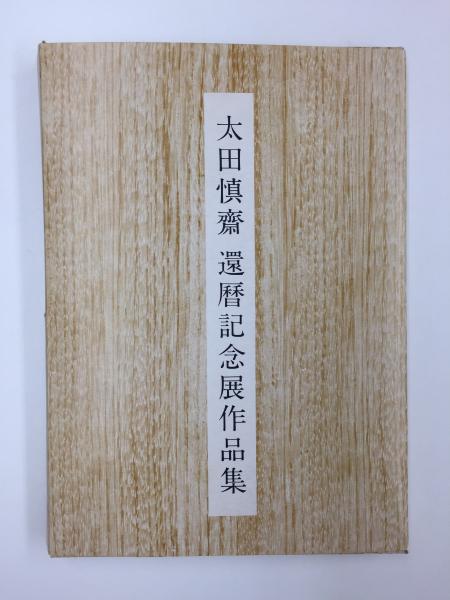 太田慎齋 還暦記念展作品集